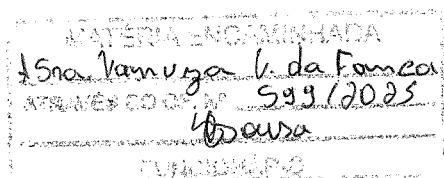 MATÉRIA ENCAMINHADA
A Sra. Vanuza V. da Fonseca
ATRAVÉS DO OF. Nº 599/2025
Sousa
FUNCIONÁRIO